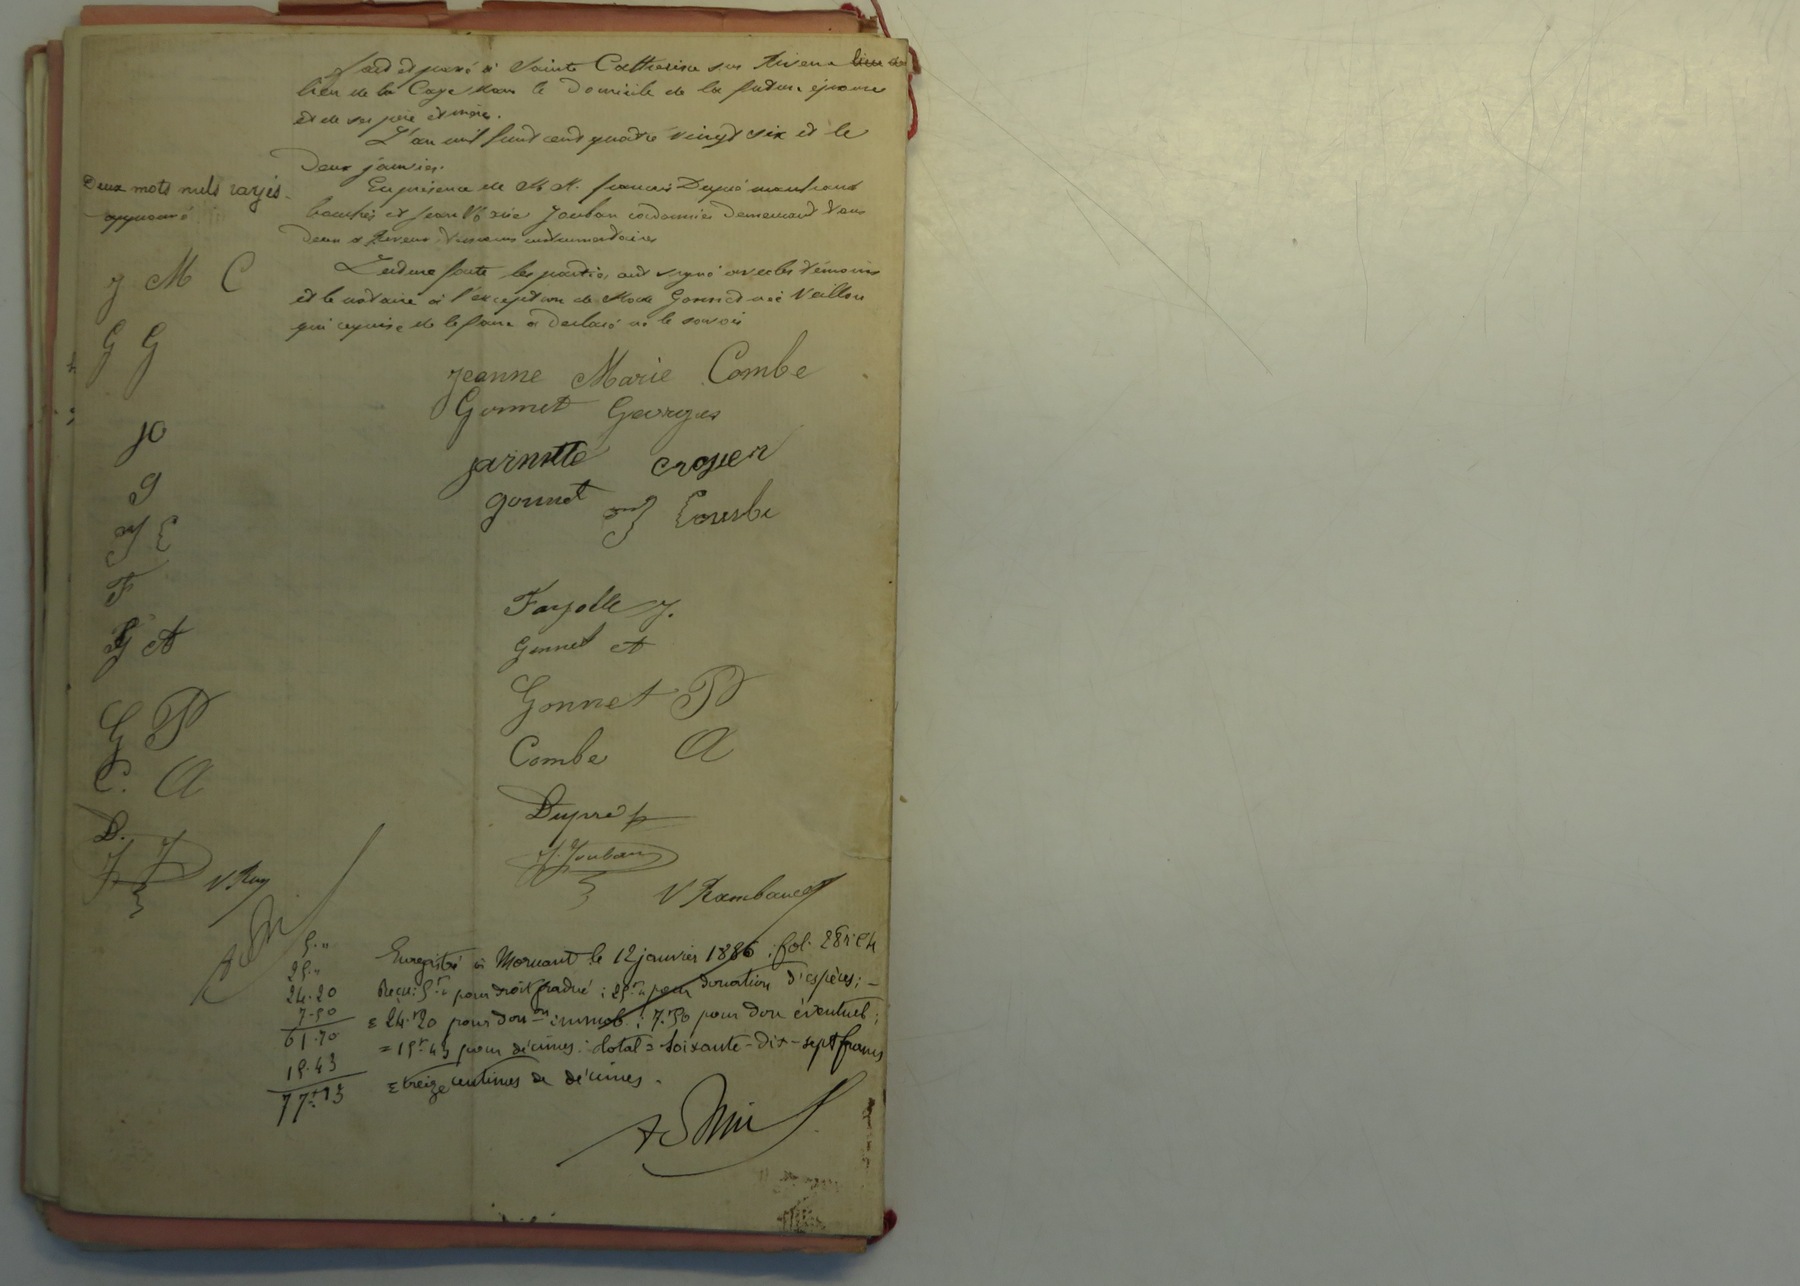 fait et passé à Sainte Catherine sur Riverie lieu de
lieu de la Caye dans le domicile de la future épouse
et de ses père et mère.
L'an mil huit cent quatre vingt six et le
Deux janvier.
En présence de M. M. francois Dupré marchand
boucher et Jean Marie Jouban cordonnier demeurant tous
deux à Riverie témoins instrumentaires
Lecture faite les parties ont signé avec les témoins
et le notaire à l'exception de Mde Gonnet née Veillon
qui requise de le faire a déclaré ne le savoir
Deux mots nuls rayés
approuvé
J M C
G G
JC
g
JM C
F
G A
G P
C. A
D.
J J
V Ray
Jeanne Marie Combe
Gonnet Georges
crozier
gonnet
JM Combe
Fayolle J.
Gonnet A
Gonnet P
Combe A
Dupré f
J. Jouban
V Rambaud
5."
25."
24.20
7.50
61.70
15.43
77.13
Enregistré à Mornant le 12 janvier 1886, fol. 28
Reçu: 5f" pour droit gradué; 25f" pour donation d'espèces;
& 24f20 pour donon immob; 7.50 pour don éventuel;
= 15f43 pour décimes. Total = Soixante-dix-sept francs
& treize centimes de décimes.